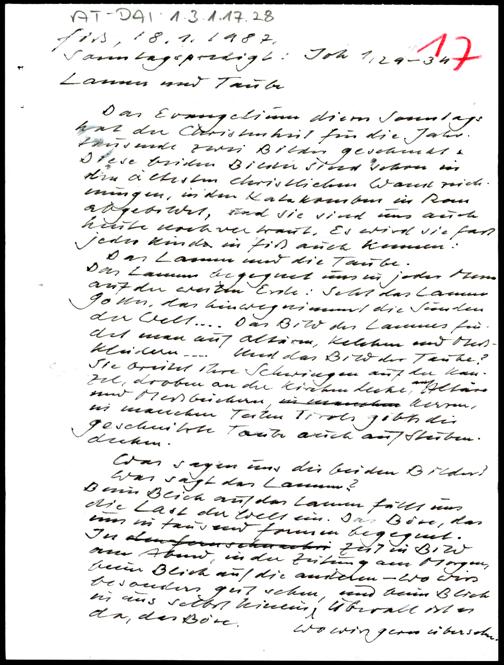 AT-DAI 1.3.1.17.28
Fiß, 18.1.1987.
17
Sonntagspredigt: Joh 1,29-34
Lamm und Taube
Das Evangelium dieses Sonntags
hat der Christenheit für die Jahr-
tausende zwei Bilder geschenkt.
Diese beiden Bilder sind schon in
den ältesten christlichen Wandzeich-
nungen, in den Katakomben in Rom
abgebildet, und sie sind uns auch
heute noch vertraut. Es wird sie fast
jedes Kinder in Fiß auch kennen:
Das Lamm und die Taube.
Das Lamm begegnet uns in jeder Messe
auf der weiten Erde: Seht das Lamm
Gottes, das hinwegnimmt die Sünden
der Welt.... Das Bild des Lammes fin-
det man auf Altären, Kelchen und Mess-
kleidern.... Und das Bild der Taube?
Sie breitet ihre Schwingen auf der Kan-
zel, droben an der Kirchendecke, auf Altäre
und Messbüchern, in manchen
in manchen Teilen Tirols gibt's die
geschnitzte Taube auch auf Stuben-
decken.
Was sagen uns die beiden Bilder?
Was sagt das Lamm?
Beim Blick auf das Lamm fällt uns
die Last der Welt ein. Das Böse, das
uns in tausend Formen begegnet.
In Zeit im Bild
am Abend, in der Zeitung am Morgen,
beim Blick auf die anderen - wo wir's
besonders gut sehen, und beim Blick
in uns selbst hinein, wo wir's gern übersehn.
Überall ist es
da, das Böse.